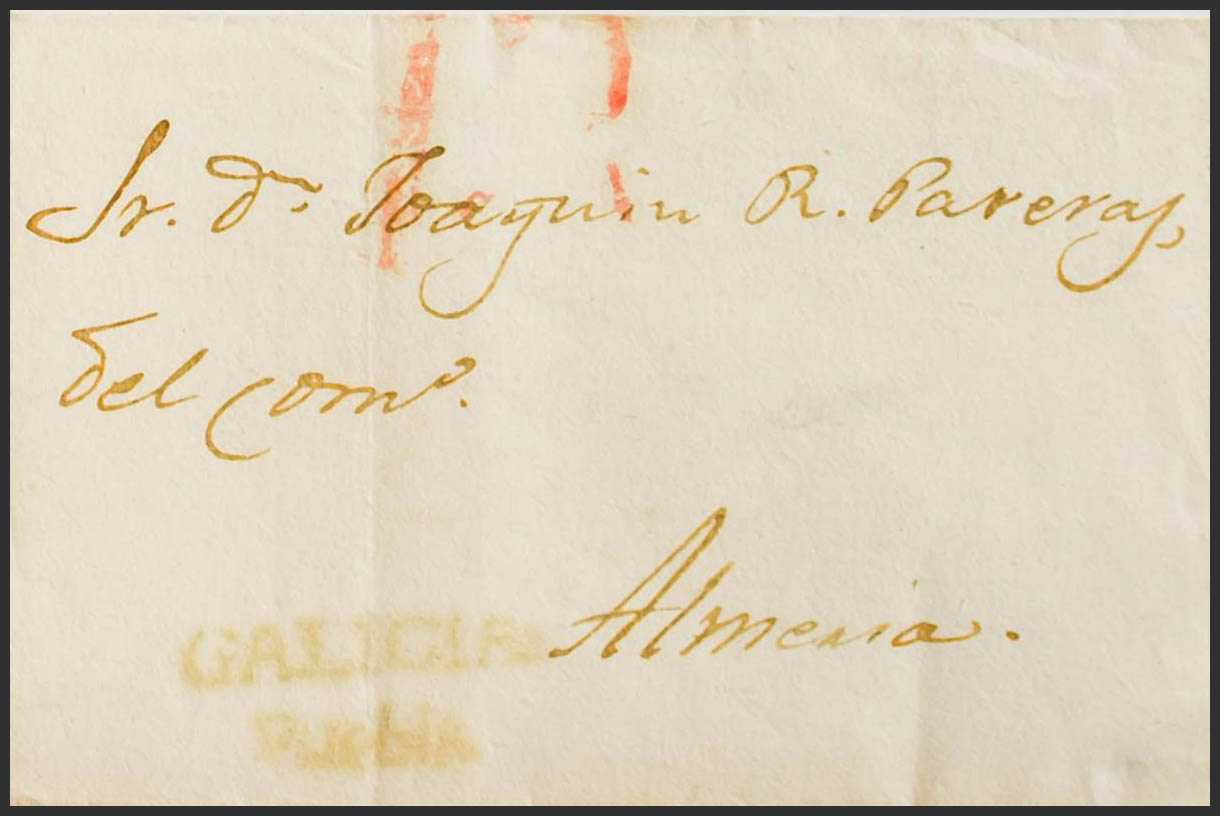 Sr. Dn. Joaquin R. Paveras,
del Como.
Almeria.
GALICIA
Puebla